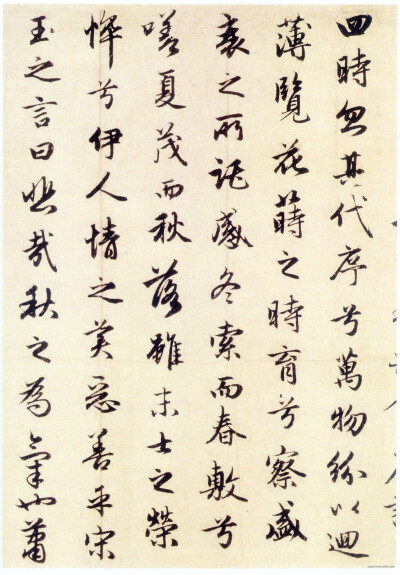 四時忽其代序兮萬物紛以迴
薄覽花蒔之時育兮察盛
衰之所託感冬索而春敷兮
嗟夏茂而秋落雖末士之榮
悴兮伊人情之美惡善乎宋
玉之言曰悲哉秋之為氣也蕭